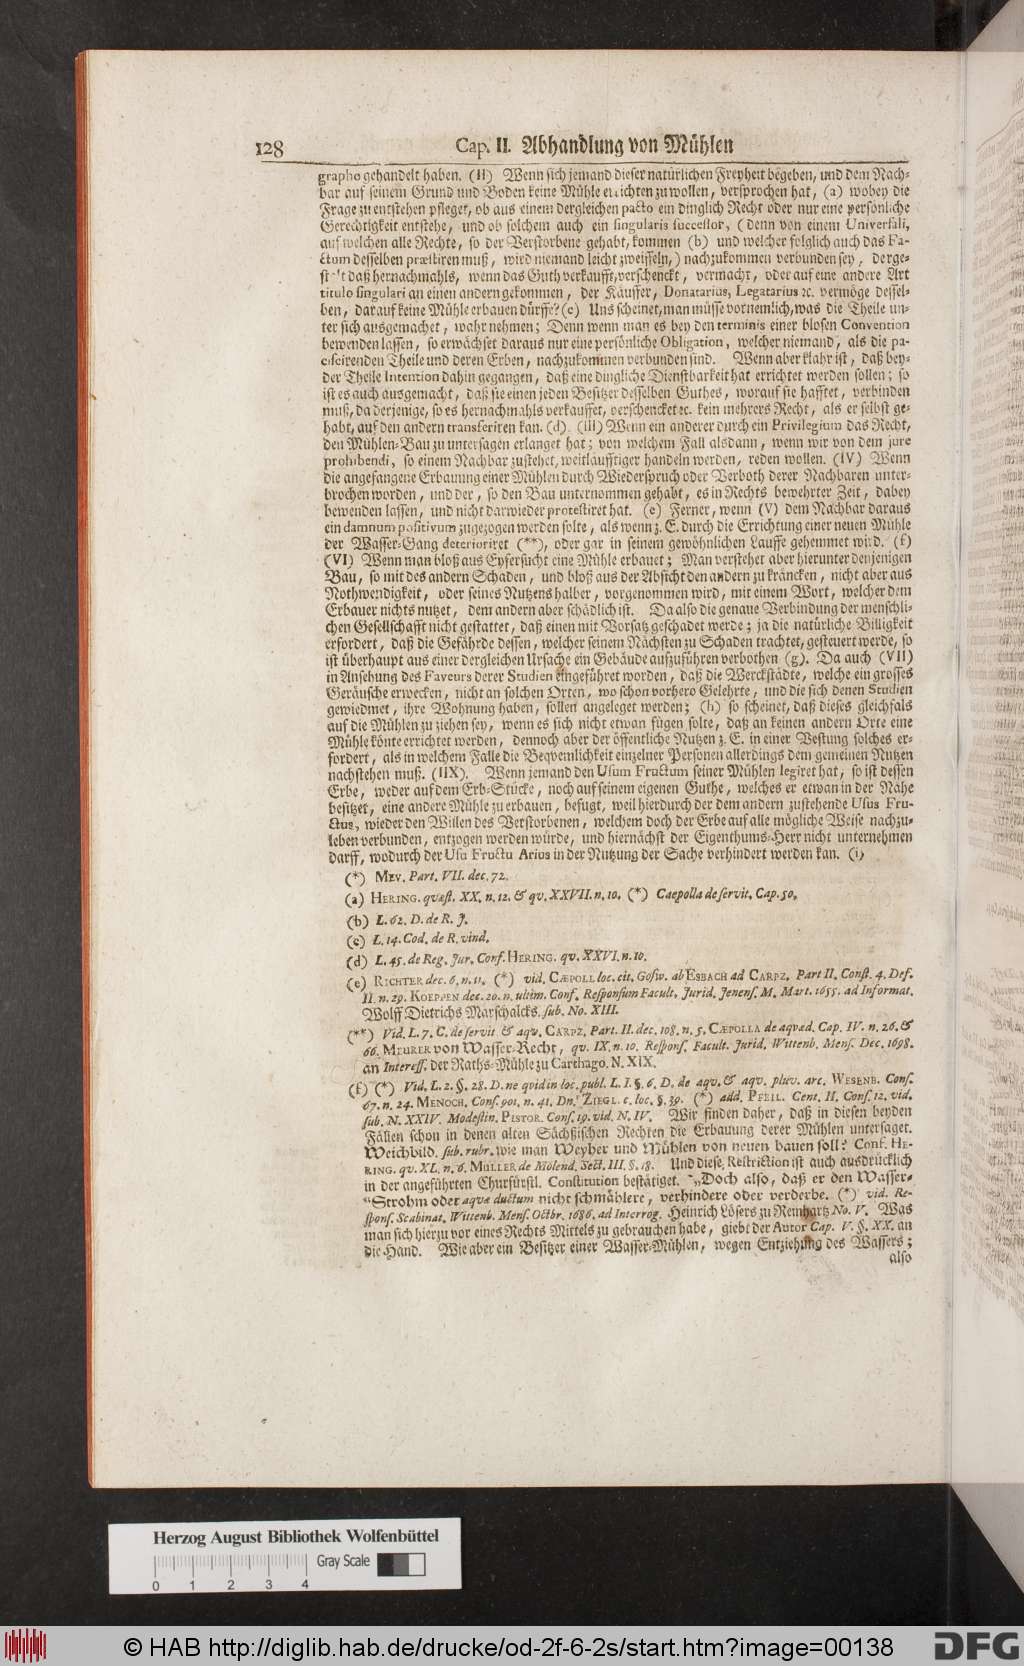 128 Cap. II. Abhandlung von Mühlen
grapho gehandelt haben. (II) Wenn sich jemand dieser natürlichen Freyheit begeben, und dem Nach-
bar auf seinem Grund und Boden keine Mühle errichten zu wollen, versprochen hat, (a) wobey die
Frage zu entstehen pfleget, ob aus einem dergleichen pacto ein dinglich Recht oder nur eine persönliche
Gerechtigkeit entstehe, und ob solchem auch ein singularis successor, (denn von einem Universali,
auf welchen alle Rechte, so der Verstorbene gehabt, kommen (b) und welcher folglich auch das Fa-
ctum desselben præstiren muß, wird niemand leicht zweiffeln,) nachzukommen verbunden sey, derge-
stalt daß hernachmahls, wenn das Guth verkaufft, verschenckt, vermacht, oder auf eine andere Art
titulo singulari an einen andern gekommen, der Käuffer, Donatarius, Legatarius ꝛc. vermöge dessel-
ben, darauf keine Mühle erbauen dürffe? (c) Uns scheinet, man müsse vornemlich, was die Theile un-
ter sich ausgemachet, wahr nehmen; Denn wenn man es bey den terminis einer blosen Convention
bewenden lassen, so erwächset daraus nur eine persönliche Obligation, welcher niemand, als die pa-
ciscirenden Theile und deren Erben, nachzukommen verbunden sind. Wenn aber klahr ist, daß bey-
der Theile Intention dahin gegangen, daß eine dingliche Dienstbarkeit hat errichtet werden sollen; so
ist es auch ausgemacht, daß sie einen jeden Besitzer desselben Guthes, worauf sie hafftet, verbinden
muß, da derjenige, so es hernachmahls verkauffet, verschencket ꝛc. kein mehrers Recht, als er selbst ge-
habt, auf den andern transferiren kan. (d). (III) Wenn ein anderer durch ein Privilegium das Recht,
den Mühlen-Bau zu untersagen erlanget hat; von welchem Fall alsdann, wenn wir von dem jure
prohibendi, so einem Nachbar zustehet, weitläufftiger handeln werden, reden wollen. (IV) Wenn
die angefangene Erbauung einer Mühlen durch Wiederspruch oder Verboth derer Nachbaren unter-
brochen worden, und der, so den Bau unternommen gehabt, es in Rechts bewehrter Zeit, dabey
bewenden lassen, und nicht darwieder protestiret hat. (e) Ferner, wenn (V) dem Nachbar daraus
ein damnum positivum zugezogen werden solte, als wenn z. E. durch die Errichtung einer neuen Mühle
der Wasser-Gang deterioriret (**), oder gar in seinem gewöhnlichen Lauffe gehemmet wird. (f)
(VI) Wenn man bloß aus Eyfersucht eine Mühle erbauet; Man verstehet aber hierunter denjenigen
Bau, so mit des andern Schaden, und bloß aus der Absicht den andern zu kräncken, nicht aber aus
Nothwendigkeit, oder seines Nutzens halber, vorgenommen wird, mit einem Wort, welcher dem
Erbauer nichts nutzet, dem andern aber schädlich ist. Da also die genaue Verbindung der menschli-
chen Gesellschafft nicht gestattet, daß einen mit Vorsatz geschadet werde; ja die natürliche Billigkeit
erfordert, daß die Gefährde dessen, welcher seinem Nächsten zu Schaden trachtet, gesteuert werde, so
ist überhaupt aus einer dergleichen Ursache ein Gebäude aufzuführen verbothen (g). Da auch (VII)
in Ansehung des Faveurs derer Studien eingeführet worden, daß die Werckstädte, welche ein grosses
Geräusche erwecken, nicht an solchen Orten, wo schon vorhero Gelehrte, und die sich denen Studien
gewiedmet, ihre Wohnung haben, sollen angeleget werden; (h) so scheinet, daß dieses gleichfals
auf die Mühlen zu ziehen sey, wenn es sich nicht etwan fügen solte, daß an keinen andern Orte eine
Mühle könte errichtet werden, dennoch aber der öffentliche Nutzen z. E. in einer Vestung solches er-
fordert, als in welchem Falle die Beqvemlichkeit einzelner Personen allerdings dem gemeinen Nutzen
nachstehen muß. (IIX). Wenn jemand den Usum Fructum seiner Mühlen legiret hat, so ist dessen
Erbe, weder auf dem Erb-Stücke, noch auf seinem eigenen Guthe, welches er etwan in der Nähe
besitzet, eine andere Mühle zu erbauen, befugt, weil hierdurch der dem andern zustehende Usus Fru-
ctus, wieder den Willen des Verstorbenen, welchem doch der Erbe auf alle mögliche Weise nachzu-
leben verbunden, entzogen werden würde, und hiernächst der Eigenthums-Herr nicht unternehmen
darff, wodurch der Usu Fructu Arius in der Nutzung der Sache verhindert werden kan. (i)
(*) MEV. Part. VII. dec. 72.
(a) HERING. qvæst. XX. n. 12. & qv. XXVII. n. 10. (*) Caepolla de servit. Cap. 50.
(b) L. 62. D. de R. J.
(c) L. 14. Cod. de R. vind.
(d) L. 45. de Reg. Jur. Conf. HERING. qv. XXVI. n. 10.
(e) RICHTER dec. 6, n. 11. (*) vid. CÆPOLL loc. cit. Gosw. ab ESBACH ad CARPZ. Part II. Const. 4. Def.
II. n. 29. KOEPPEN dec. 20. n. ultim. Conf. Responsum Facult. Jurid. Jenens. M. Mart. 1655. ad Informat.
Wolff Dietrichs Marschalcks. sub. No. XIII.
(**) Vid. L. 7. C. de servit. & aqv. CARPZ. Part. II. dec. 108. n. 5. CÆPOLLA de aqvæd. Cap. IV. n. 26. &
66. MEURER von Wasser-Recht, qv. IX. n. 10. Respons. Facult. Jurid. Wittenb. Mens. Dec. 1698.
an Interess. der Raths-Mühle zu Carthago. N. XIX.
(f) (*) Vid. L. 2. §. 28. D. ne qvid in loc. publ. L. I. §. 6. D. de aqv. & aqv. pluv. arc. WESENB. Cons.
67. n. 24. MENOCH. Cons. 901. n. 41. Dn. ZIEGL. c. loc. §. 39. (*) add. PFEIL. Cent. II. Cons. 12. vid.
sub. N. XXIV. Modestin. PISTOR. Cons. 19. vid. N. IV. Wir finden daher, daß in diesen beyden
Fällen schon in denen alten Sächßischen Rechten die Erbauung derer Mühlen untersaget.
Weichbild. sub. rubr. wie man Weyher und Mühlen von neuen bauen soll? Conf. HE-
RING. qv. XL. n. 6. MULLER de Molend. Sect. III. §. 18. Und diese, Restriction ist auch ausdrücklich
in der angeführten Churfürstl. Constitution bestätiget. „Doch also, daß er den Wasser-
“Strohm oder aqvæ ductum nicht schmählere, verhindere oder verderbe. (*) vid. Re-
spons. Scabinat. Wittenb. Mens. Octbr. 1686. ad Interrog. Heinrich Lösers zu Remhartz No. V. Was
man sich hierzu vor eines Rechts Mittels zu gebrauchen habe, giebt der Autor Cap. V. §. XX. an
die Hand. Wie aber ein Besitzer einer Wasser-Mühlen, wegen Entziehung des Wassers;
also
Herzog August Bibliothek Wolfenbüttel
Gray Scale
0 1 2 3 4
© HAB http://diglib.hab.de/drucke/od-2f-6-2s/start.htm?image=00138
DFG